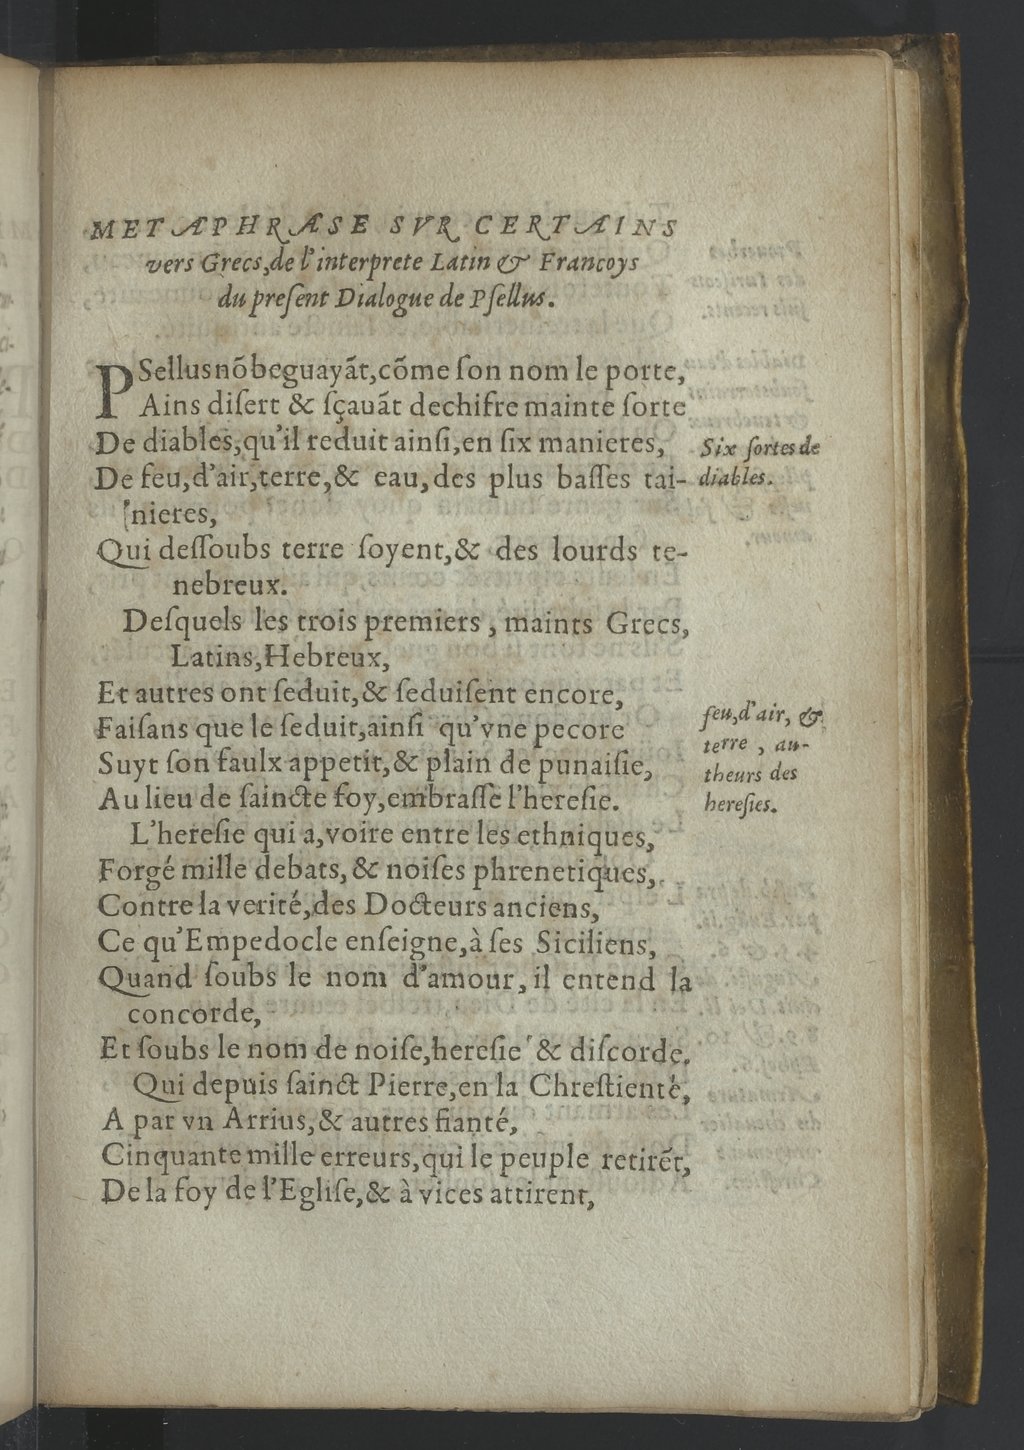 METAPHRASE SVR CERTAINS
vers Grecs,de l'interprete Latin & Francoys
du preſent Dialogue de Pſellus.
PSellus nõ beguayãt,cõme ſon nom le porte,
Ains diſert & ſçauãt dechifre mainte ſorte
De diables,qu'il reduit ainſi,en ſix manieres,
Six ſortes de
De feu,d'air,terre,& eau,des plus baſſes tai-
diables.
nieres,
Qui deſſoubs terre ſoyent,& des lourds te-
nebreux.
Deſquels les trois premiers , maints Grecs,
Latins,Hebreux,
Et autres ont ſeduit,& ſeduiſent encore,
Faiſans que le ſeduit,ainſi qu'vne pecore
Suyt ſon faulx appetit,& plain de punaiſie,
Au lieu de ſaincte foy,embraſſe l'hereſie.
feu,d'air, &
terre , au-
theurs des
hereſies.
L'hereſie qui a,voire entre les ethniques,
Forgé mille debats, & noiſes phrenetiques,
Contre la verité,des Docteurs anciens,
Ce qu'Empedocle enſeigne,à ſes Siciliens,
Quand ſoubs le nom d'amour, il entend la
concorde,
Et ſoubs le nom de noiſe,hereſie & diſcorde.
Qui depuis ſainct Pierre,en la Chreſtienté,
A par vn Arrius,& autres fianté,
Cinquante mille erreurs,qui le peuple retirẽt,
De la foy de l'Egliſe,& à vices attirent,